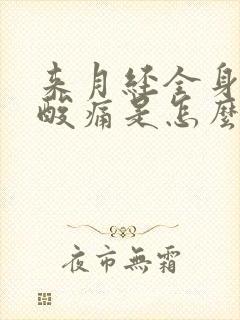 来月经全身
酸痛是怎麼
夜市無霜